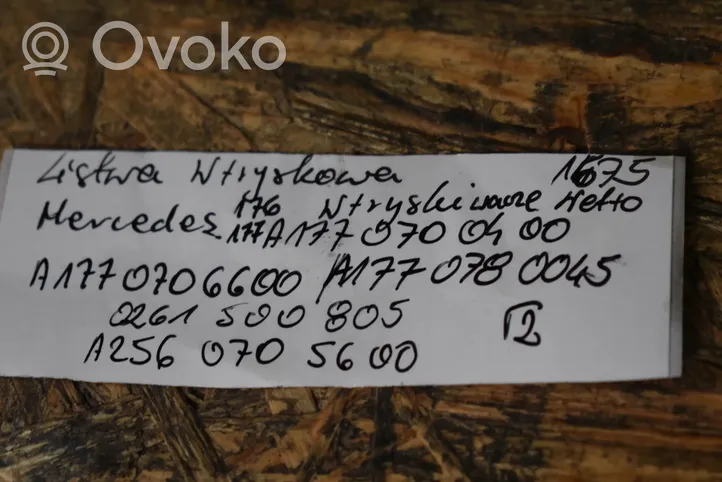 Ovoko
Listwa Wtryskowa 1675
Mercedes 176 Wtryskiwacze netto
177 A177 070 0400
A177 070 6600 / A177 078 0045
0261 500 805 Γ2
A256 070 5600